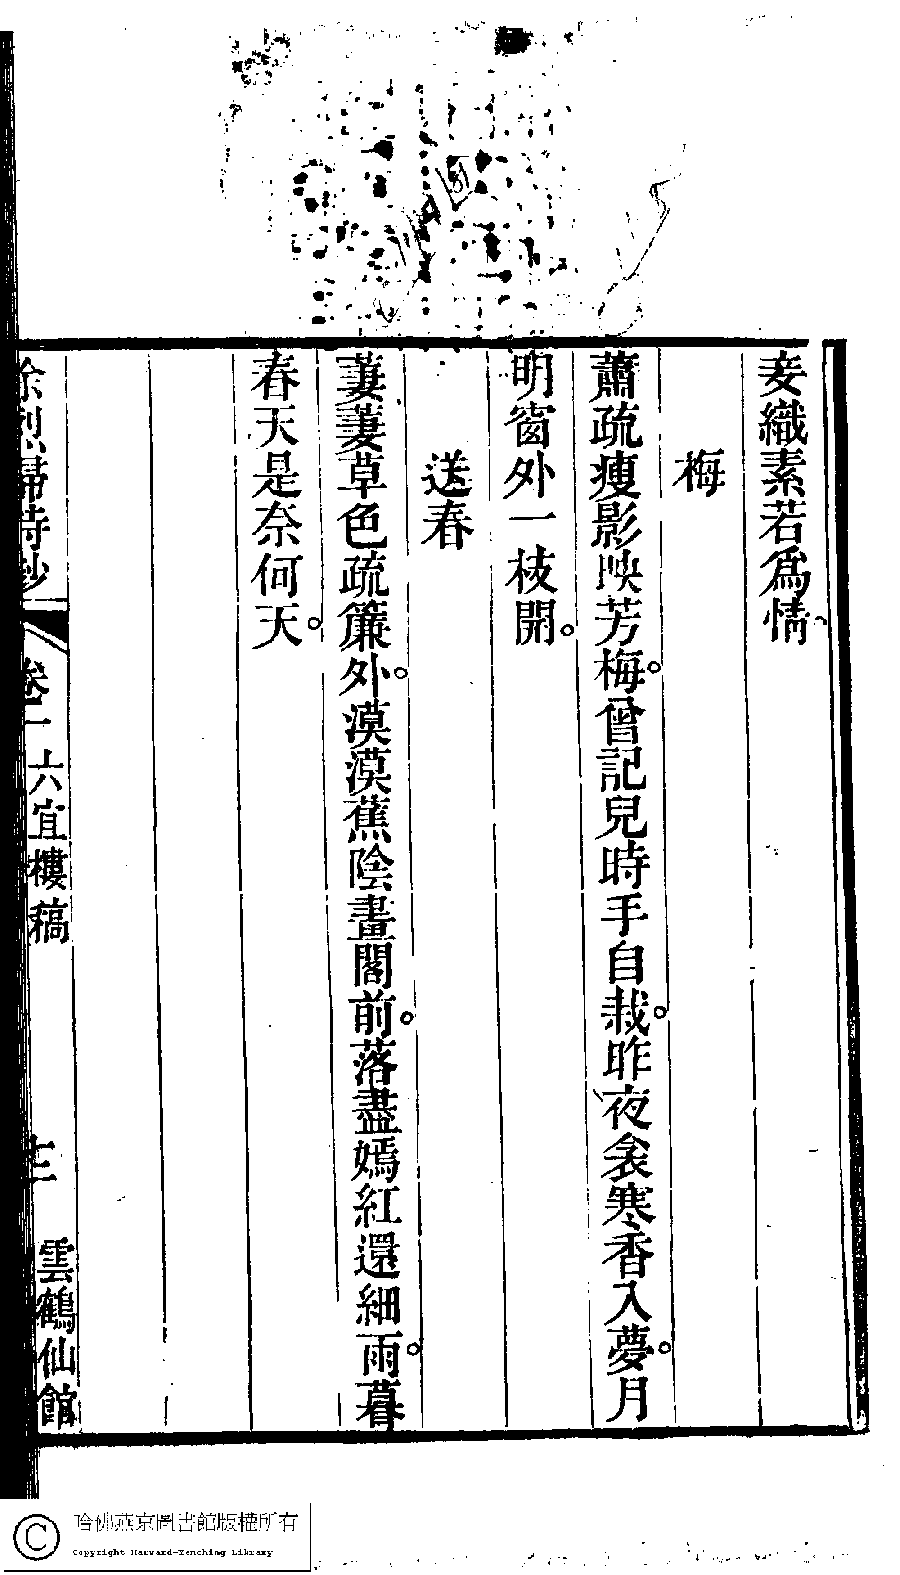 妾織素若爲情
梅
蕭疏瘦影映芳梅。曾記兒時手自栽。昨夜衾寒香入夢。月
明窗外一枝開。
送春
萋萋草色疏簾外。漠漠蕉陰畫閣前。落盡嫣紅還細雨。暮
春天是奈何天。
徐烈婦詩鈔
卷一
六宜樓稿
雲鶴仙館
哈佛燕京圖書館版權所有
Copyright Harvard-Yenching Library